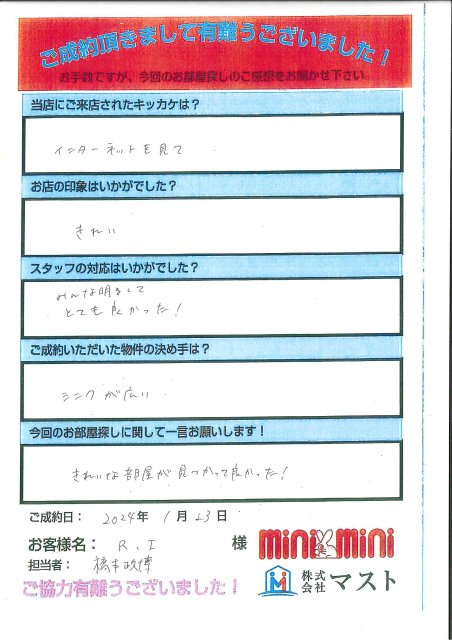 ご成約頂きまして有難うございました！
お手数ですが、今回のお部屋探しのご感想をお聞かせ下さい
当店にご来店されたキッカケは？
インターネットを見て
お店の印象はいかがでした？
きれい
スタッフの対応はいかがでした？
みんな明るくて
とても良かった！
ご成約いただいた物件の決め手は？
シンクが広い
今回のお部屋探しに関して一言お願いします！
きれいな部屋が見つかって良かった！
ご成約日： 2024年 1月 23日
お客様名： R.I 様
担当者： 橋本政博
ご協力有難うございました！
mini mini
株式会社マスト